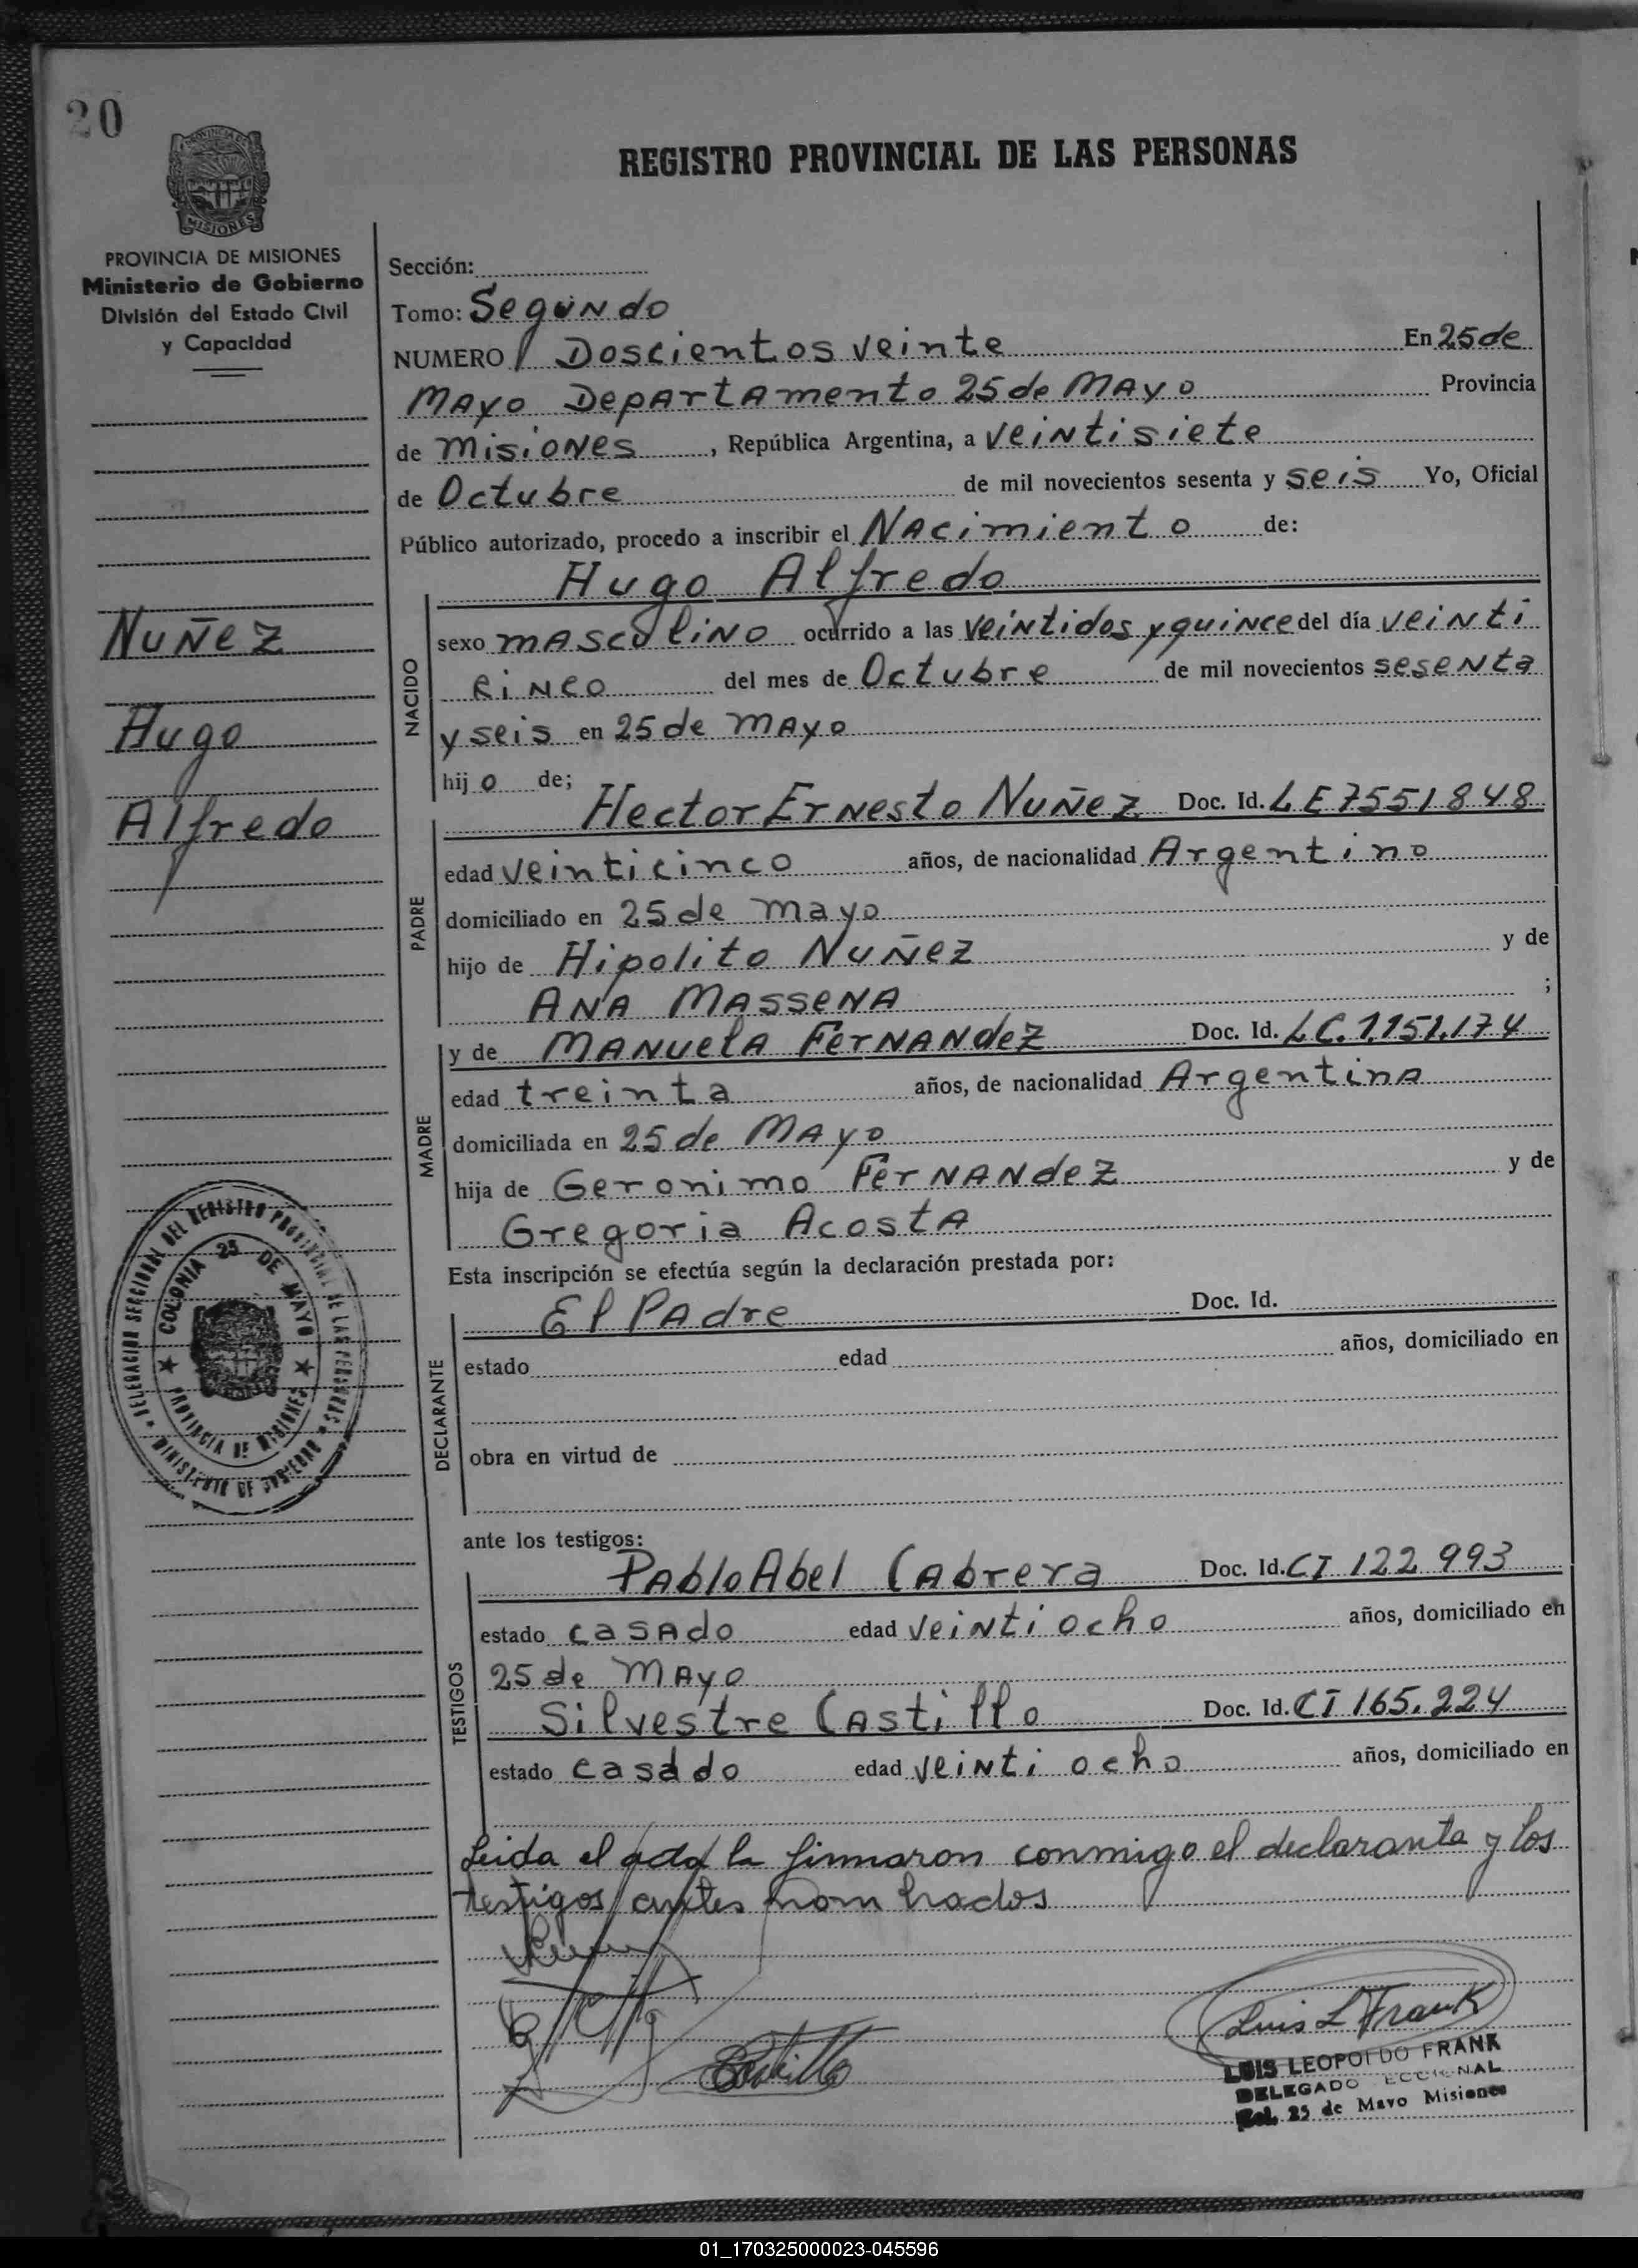 20
PROVINCIA DE MISIONES
MISIONES
REGISTRO PROVINCIAL DE LAS PERSONAS
PROVINCIA DE MISIONES
Ministerio de Gobierno
División del Estado Civil
y Capacidad
Nuñez
Hugo
Alfredo
DELEGACION SECCIONAL DEL REGISTRO PROVINCIAL DE LAS PERSONAS
MINISTERIO DE GOBIERNO
COLONIA 25 DE MAYO
PROVINCIA DE MISIONES
Sección:
Tomo: Segundo
NUMERO Doscientos veinte En 25 de
Mayo Departamento 25 de Mayo Provincia
de Misiones, República Argentina, a veintisiete
de Octubre de mil novecientos sesenta y seis Yo, Oficial
Público autorizado, procedo a inscribir el Nacimiento de:
Hugo Alfredo
NACIDO
sexo masculino ocurrido a las veintidos y quince del día veinti
cinco del mes de Octubre de mil novecientos sesenta
y seis en 25 de Mayo
hijo de;
Hector Ernesto Nuñez Doc. Id. LE 7551848
PADRE
edad veinticinco años, de nacionalidad Argentino
domiciliado en 25 de mayo
hijo de Hipolito Nuñez y de
Ana Massena ;
y de Manuela Fernandez Doc. Id. LC. 1.151.174
MADRE
edad treinta años, de nacionalidad Argentina
domiciliada en 25 de Mayo
hija de Geronimo Fernandez y de
Gregoria Acosta
Esta inscripción se efectúa según la declaración prestada por:
El Padre Doc. Id.
DECLARANTE
estado edad años, domiciliado en
obra en virtud de
ante los testigos:
Pablo Abel Cabrera Doc. Id. CI 122 993
TESTIGOS
estado casado edad veinti ocho años, domiciliado en
25 de Mayo
Silvestre Castillo Doc. Id. CI 165.224
estado casado edad veinti ocho años, domiciliado en
Leida el acta la firmaron conmigo el declarante y los
testigos antes nombrados
Castillo
Luis L Frank
LUIS LEOPOLDO FRANK
DELEGADO SECCIONAL
Col. 25 de Mayo Misiones
01_170325000023-045596